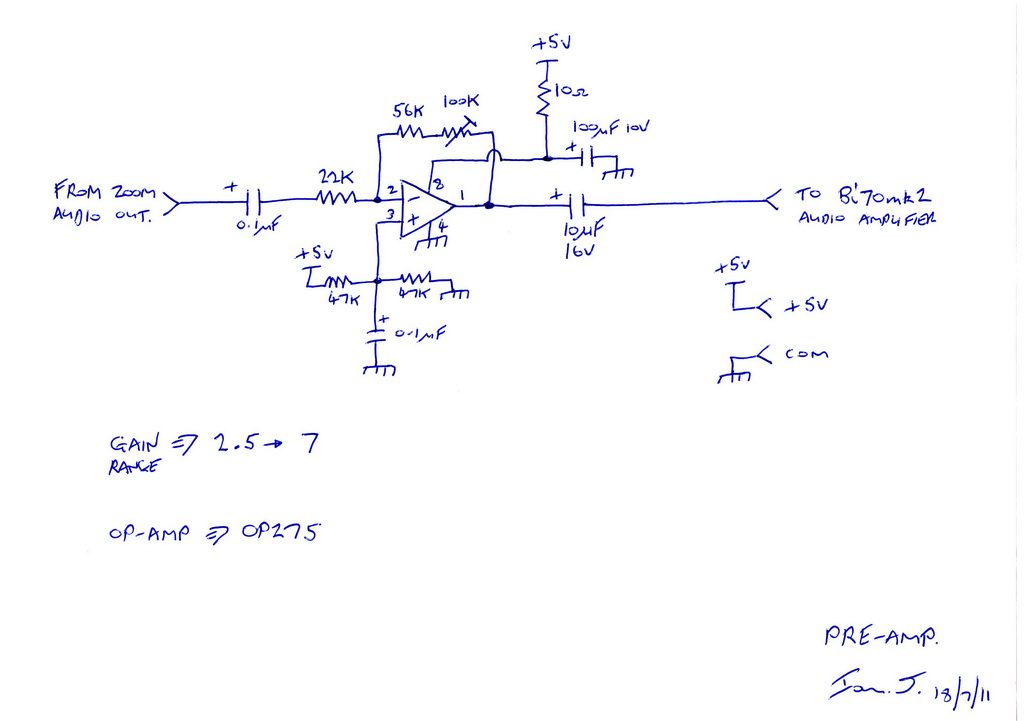 +5V
10Ω
56K
100K
100µF 10V
+
22K
2
8
1
-
FROM ZOOM
AUDIO OUT.
+
0.1µF
3
+
4
+
10µF
16V
TO B'70mk2
AUDIO AMPLIFIER
+5V
47K
47K
+
0.1µF
+5V
+5V
COM
GAIN ⇒ 2.5 → 7
RANGE
OP-AMP ⇒ OP275
PRE-AMP.
Ian. J. 18/7/11